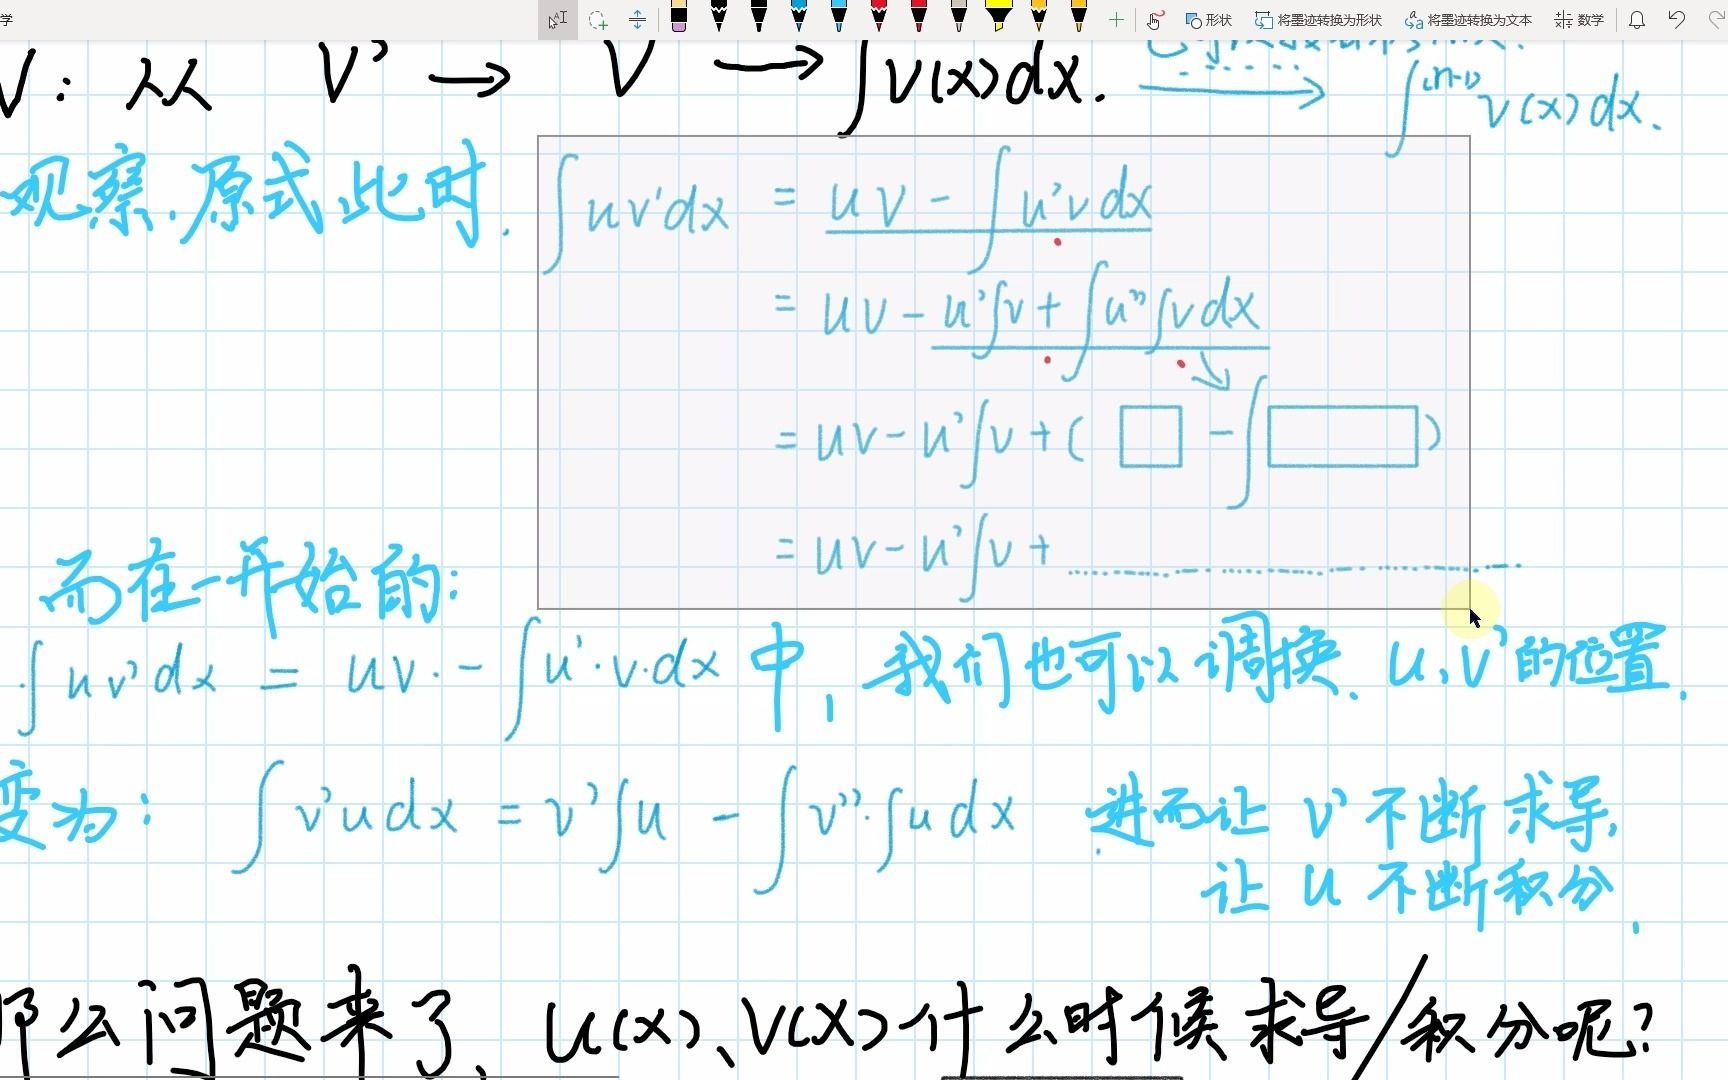 学 形状 将墨迹转换为形状 将墨迹转换为文本 数学
V: 从 V' → V → ∫V(x)dx. → ∫⁽ⁿ⁻¹⁾ v(x)dx.
观察.原式,此时. ∫uv'dx = uv - ∫u'vdx
= uv - u'∫v + ∫u''∫vdx
= uv - u'∫v + ( □ - ∫□ )
= uv - u'∫v + ……
而在一开始的:
∫uv'dx = uv· - ∫u'·v·dx 中, 我们也可以调换. u,v'的位置.
变为: ∫v'udx = v'∫u - ∫v''·∫udx 进而让 v' 不断求导,
让 u 不断积分.
那么问题来了、u(x)、v(x)什么时候求导/积分呢?